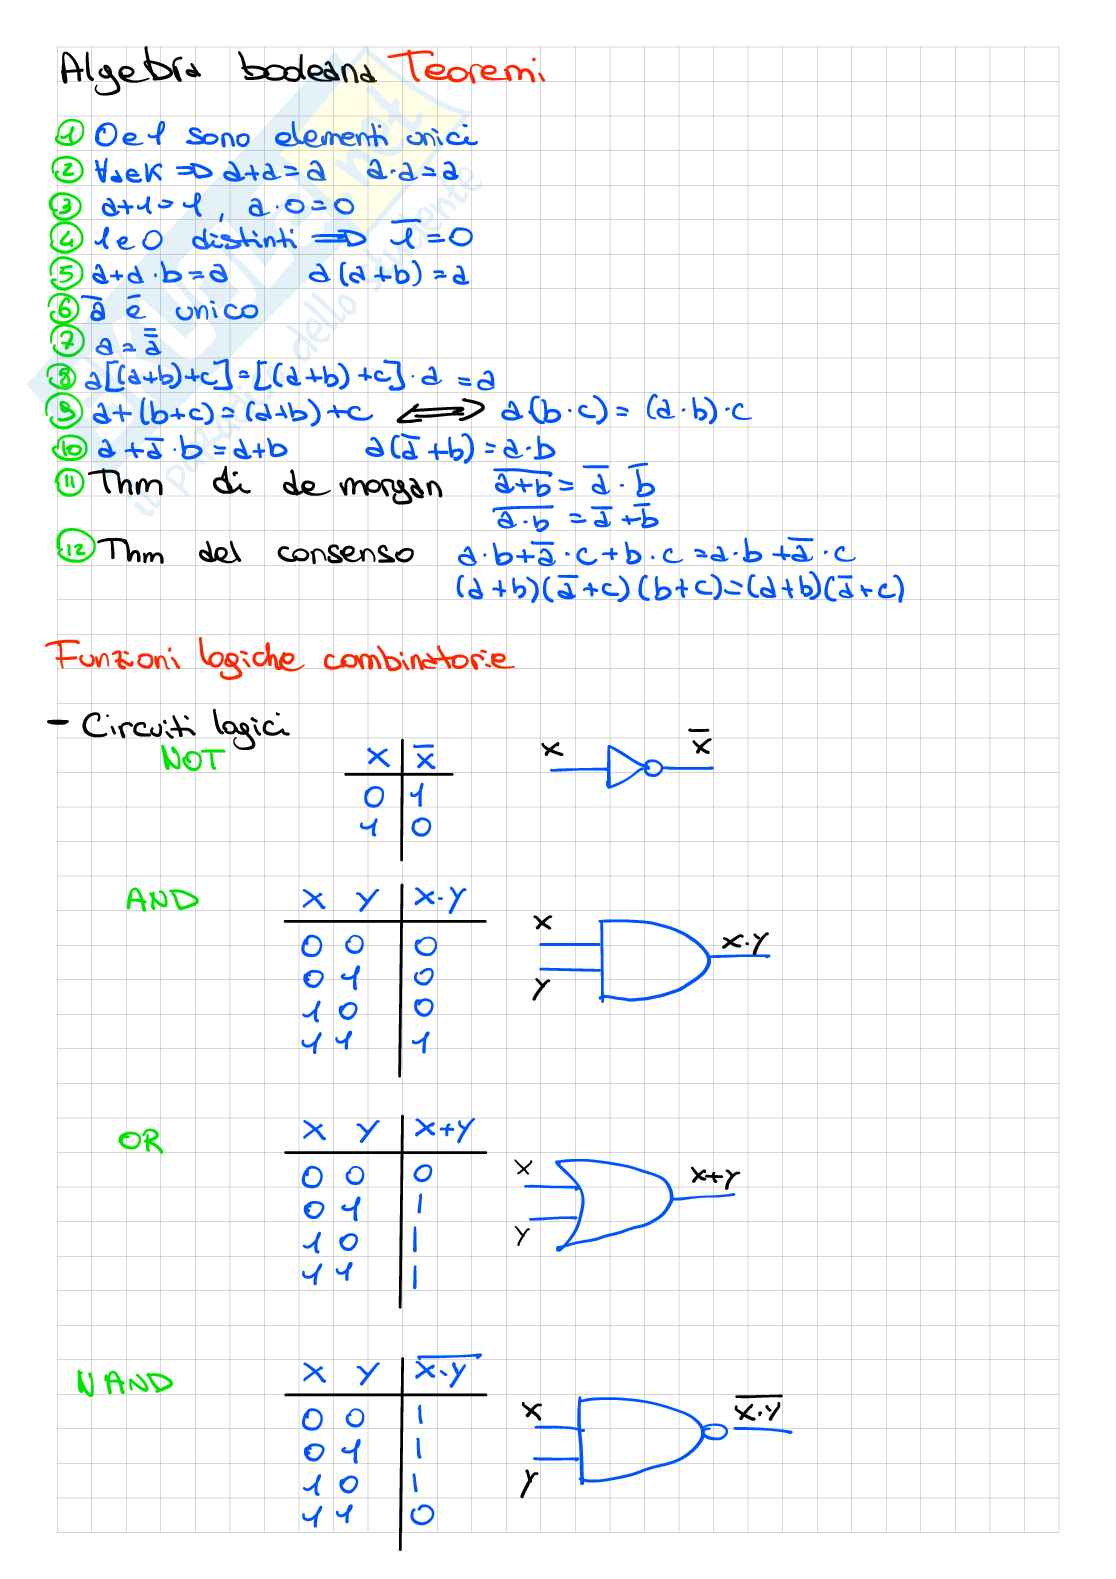 Algebra booleana Teoremi
① 0 e 1 sono elementi unici
② ∀a∈K ⇒ a+a=a a·a=a
③ a+1=1, a·0=0
④ 1 e 0 distinti ⇒ 1̅=0
⑤ a+a·b=a a(a+b)=a
⑥ a̅ è unico
⑦ a=a̿
⑧ a[(a+b)+c]=[(a+b)+c]·a=a
⑨ a+(b+c)=(a+b)+c ⟺ a(b·c)=(a·b)·c
⑩ a+a̅·b=a+b a(a̅+b)=a·b
⑪ Thm di de morgan \overline{a+b}=a̅·b̅
\overline{a·b}=a̅+b̅
⑫ Thm del consenso a·b+a̅·c+b·c=a·b+a̅·c
(a+b)(a̅+c)(b+c)=(a+b)(a̅+c)
Funzioni logiche combinatorie
- Circuiti logici
NOT
x x̅
0 1
1 0
x x̅
AND
x y x·y
0 0 0
0 1 0
1 0 0
1 1 1
x
y
x·y
OR
x y x+y
0 0 0
0 1 1
1 0 1
1 1 1
x
y
x+y
NAND
x y \overline{x·y}
0 0 1
0 1 1
1 0 1
1 1 0
x
y
\overline{x·y}